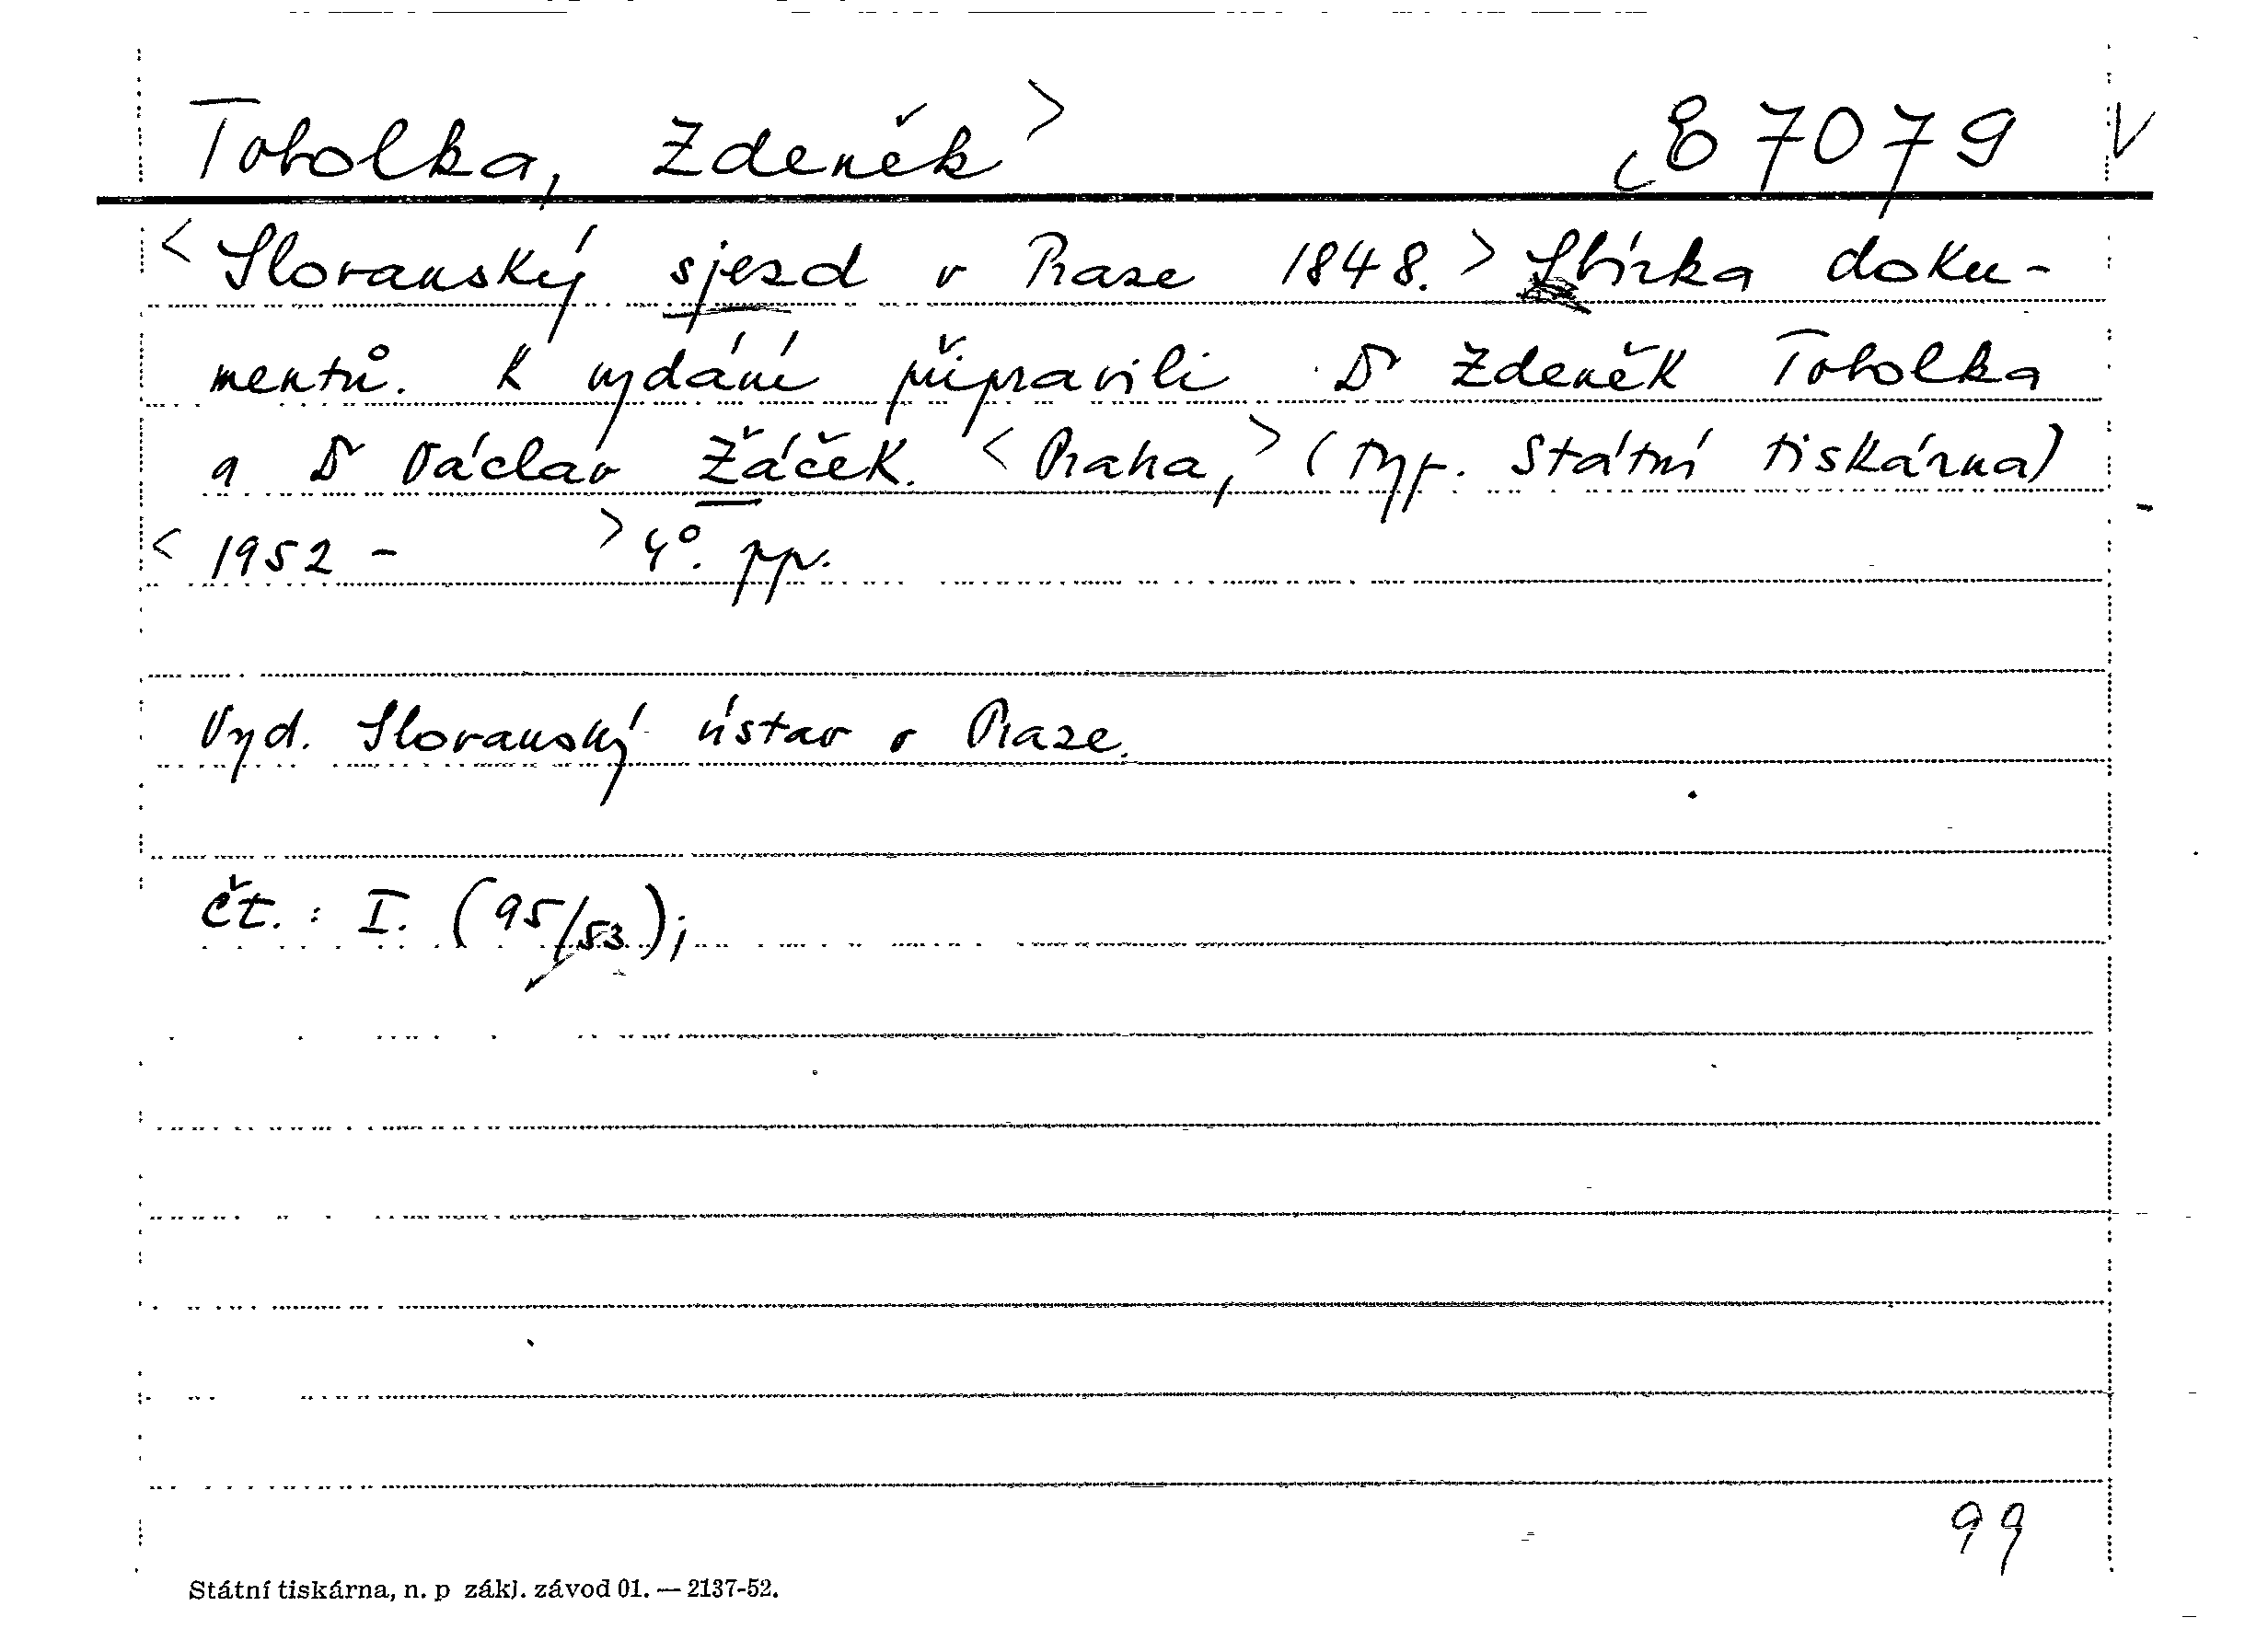 Tobolka, Zdeněk > E 7079 V
< Slovanský sjezd v Praze 1848. > Sbírka doku-
mentů. K vydání připravili Dr Zdeněk Tobolka
a Dr Václav Žáček. < Praha, > (typ. Státní tiskárna)
< 1952 - > 4°. pp.
Vyd. Slovanský ústav v Praze.
čt. : I. (95/53);
99
Státní tiskárna, n. p zákl. závod 01. — 2137-52.